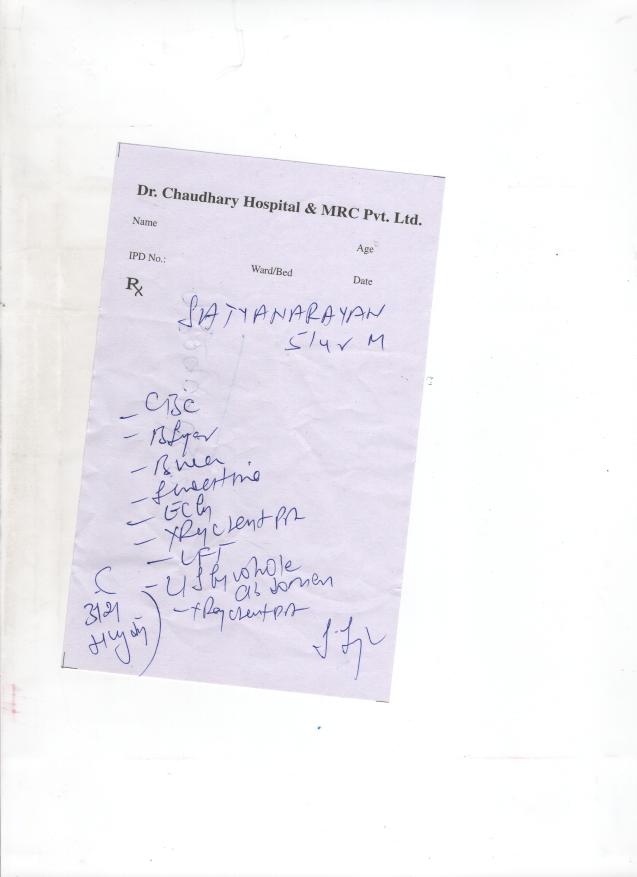 Dr. Chaudhary Hospital & MRC Pvt. Ltd.
Name
Age
IPD No.:
Ward/Bed
Date
Rx
SATYANARAYAN
51 yr M
- CBC
- B Sugar
- B urea
- S. creatinine
- ECG
- X Ray chest PA
- LFT
- USG whole
abdomen
- X Ray chest PA